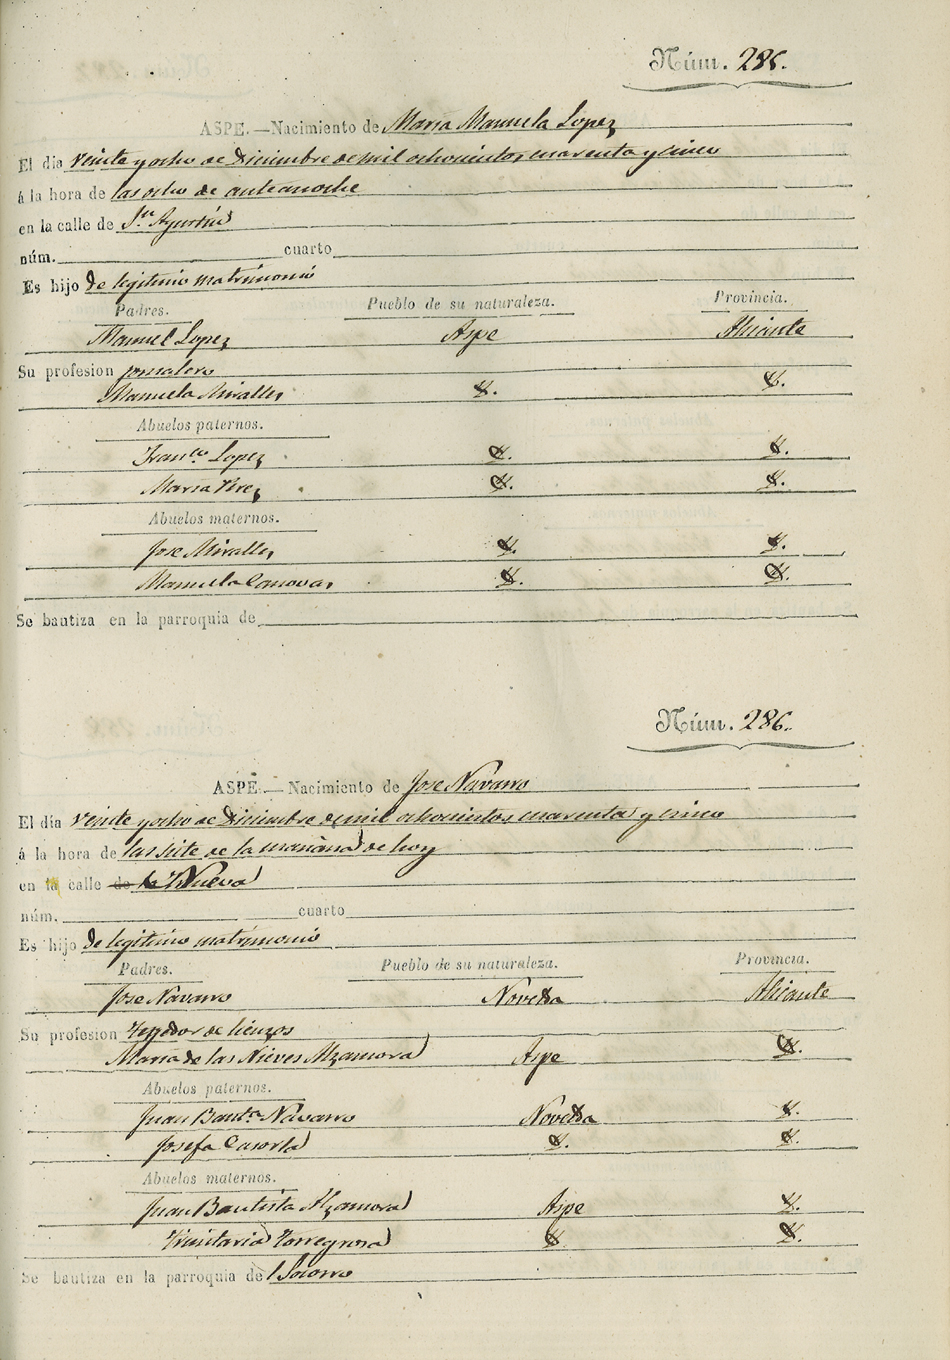 Núm. 285.
ASPE.—Nacimiento de Maria Manuela Lopez
El dia veinte y ocho de Diciembre de mil ochocientos cuarenta y cinco
á la hora de las ocho de anteanoche
en la calle de Sn. Agustin
núm. cuarto
Es hijo de legitimo matrimonio
Padres. Pueblo de su naturaleza. Provincia.
Manuel Lopez Aspe Alicante
Su profesion jornalero
Manuela Miralles
Abuelos paternos.
Franco Lopez
Maria
Abuelos maternos.
Jose Miralles
Manuela Canovas
Se bautiza en la parroquia de
Núm. 286.
ASPE.—Nacimiento de Jose Navarro
El dia veinte y ocho de Diciembre de mil ochocientos cuarenta y cinco
á la hora de las siete de la mañana de hoy
en la calle de la Nueva
núm. cuarto
Es hijo de legitimo matrimonio
Padres. Pueblo de su naturaleza. Provincia.
Jose Navarro Novelda Alicante
Su profesion Tejedor de lienzos
Maria de las Nieves Alzamora Aspe
Abuelos paternos.
Juan Bauta. Navarro Novelda
Josefa Cazorla
Abuelos maternos.
Juan Bautista Alzamora Aspe
Trinitaria Torregrosa
Se bautiza en la parroquia del Socorro